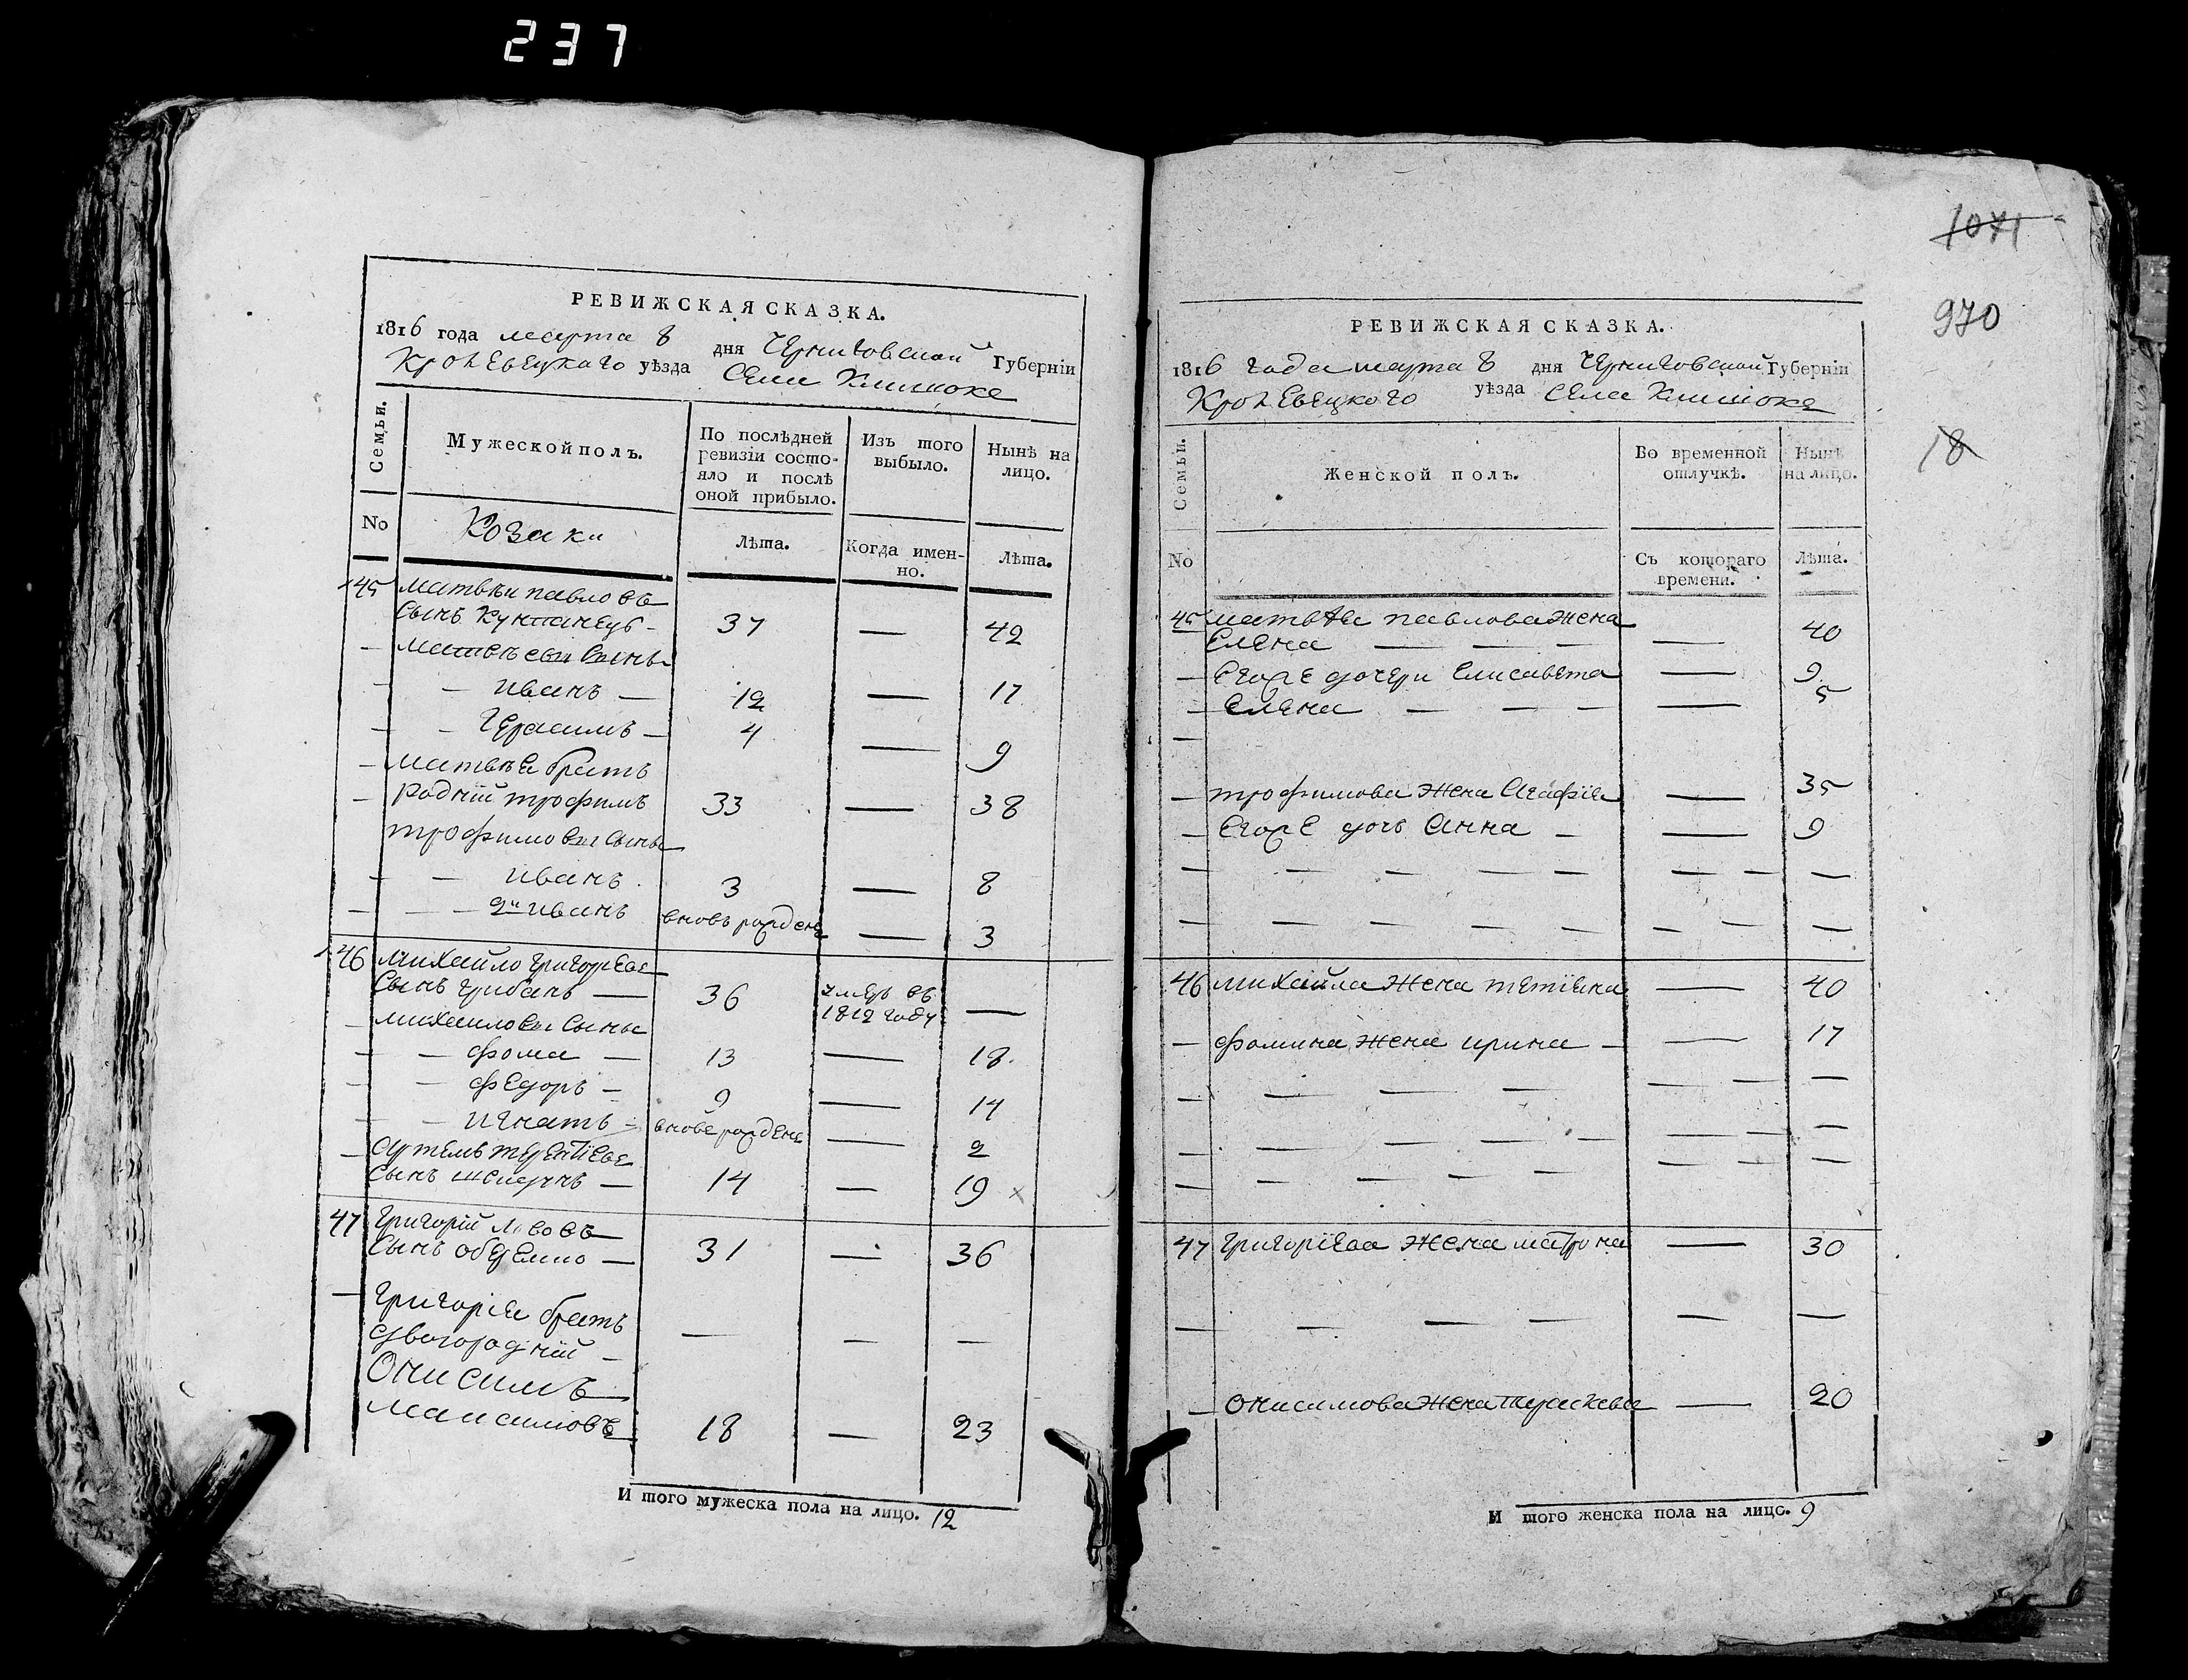 237
РЕВИЖСКАЯ СКАЗКА.
1816 года марта 8 дня Черниговской Губерніи
Кролевецкаго уѣзда Села
Семьи.
Мужеской полъ.
По послѣдней ревизіи состо-
яло и послѣ
оной прибыло.
Изъ того
выбыло.
Нынѣ на
лицо.
No
Козаки
Лѣта.
Когда имен-
но.
Лѣта.
145 Матвѣи павловъ
Сынъ 37 — 42
— Матвѣевы Сыны
— — иванъ — 12 — 17
— — Герасимъ — 4 — 9
— Матвѣя братъ
— родній трофимъ 33 — 38
трофимовы Сыны
— — иванъ 3 — 8
— — — 2й иванъ вновь рожденъ — 3
146 михайло григорьевъ
Сынъ грибанъ — 36 умеръ въ 1812 году —
— михаиловы Сыны
— — фома — 13 — 18
— — федоръ — 9 — 14
— — игнатъ — вновь рожденъ — 2
— артемъ терентіевъ
Сынъ — 14 — 19 x
47 григорій
Сынъ — 31 — 36
— григорія братъ
двоюродній — — — —
Онисимъ
Максимовъ 18 — 23
И того мужеска пола на лицо. 12
1071
970
18
РЕВИЖСКАЯ СКАЗКА.
1816 года марта 8 дня Черниговской Губерніи
Кролевецкого уѣзда Села
Семьи.
Женской полъ.
Во временной
отлучкѣ.
Нынѣ
на лицо.
No
Съ котораго
времени.
Лѣта.
45 матвѣя павлова жена
Елена — — — — 40
— Егоже дочери Елисавета — 9
— Елена — — — — 5
—
— трофимова жена Агафія — 35
— Егоже дочь Анна — — 9
— — — — — — — —
— — — — — — — —
46 михайла жена — 40
— фомина жена ирина — — 17
— — — — — — —
— — — — — — —
— — — — — — —
47 григоріева жена матрона — 30
— — — — — —
— Онисимова жена — 20
И того женска пола на лицо. 9